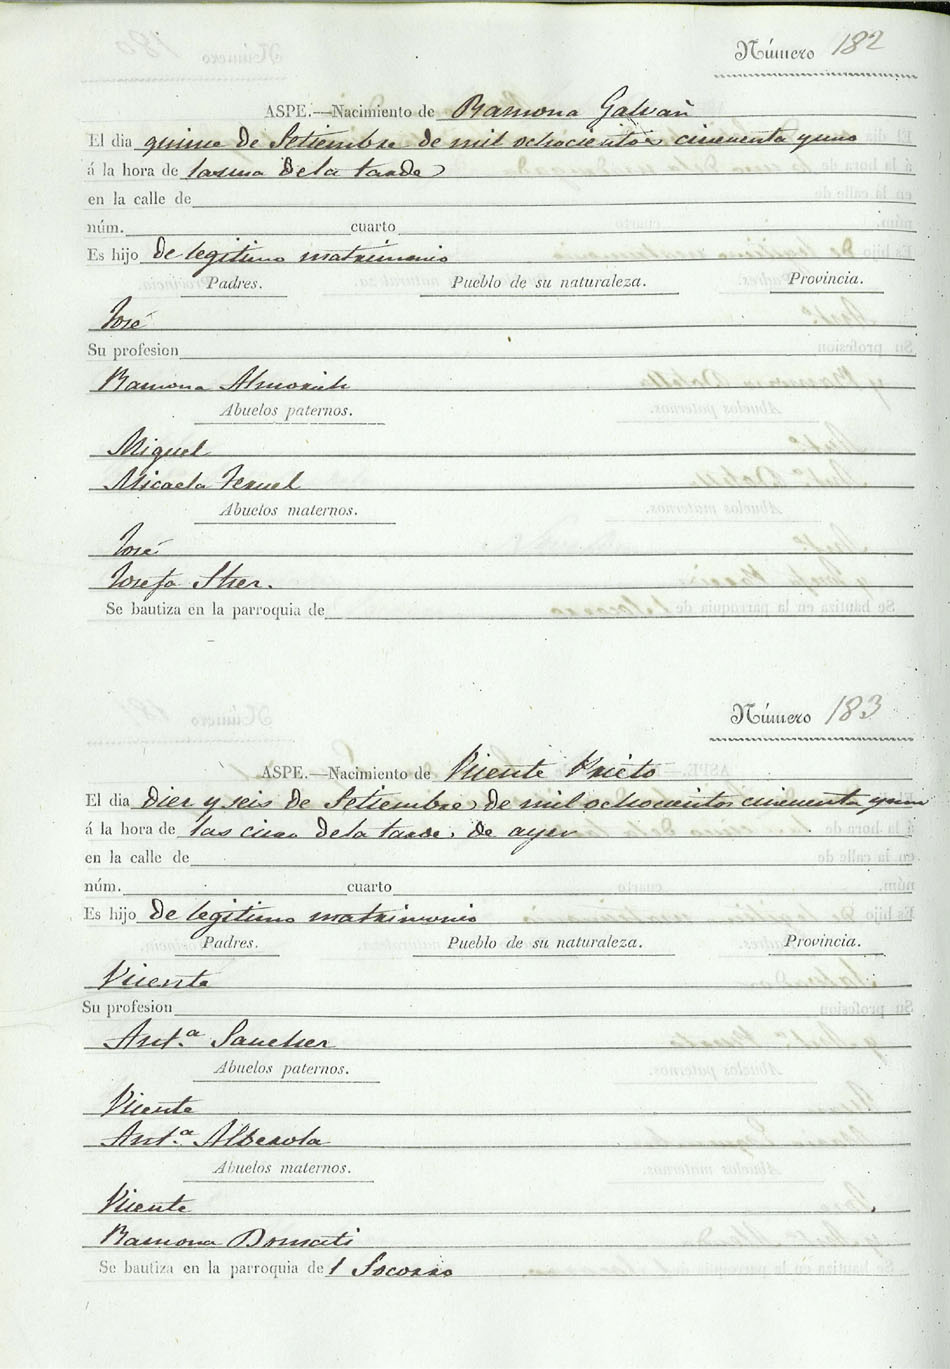 Número 182
ASPE.—Nacimiento de Ramona Galvañ
El dia quince de Setiembre de mil ochocientos cincuenta y uno
á la hora de la una de la tarde
en la calle de
núm. cuarto
Es hijo de legitimo matrimonio
Padres. Pueblo de su naturaleza. Provincia.
José
Su profesion
Ramona Almorich
Abuelos paternos.
Miguel
Micaela Teruel
Abuelos maternos.
José
Josefa
Se bautiza en la parroquia de
Número 183
ASPE.—Nacimiento de Vicente Prieto
El dia diez y seis de Setiembre de mil ochocientos cincuenta y uno
á la hora de las cinco de la tarde de ayer
en la calle de
núm. cuarto
Es hijo de legitimo matrimonio
Padres. Pueblo de su naturaleza. Provincia.
Vicente
Su profesion
Ant.ª Sanchez
Abuelos paternos.
Vicente
Ant.ª Alberola
Abuelos maternos.
Vicente
Ramona
Se bautiza en la parroquia de l Socorro